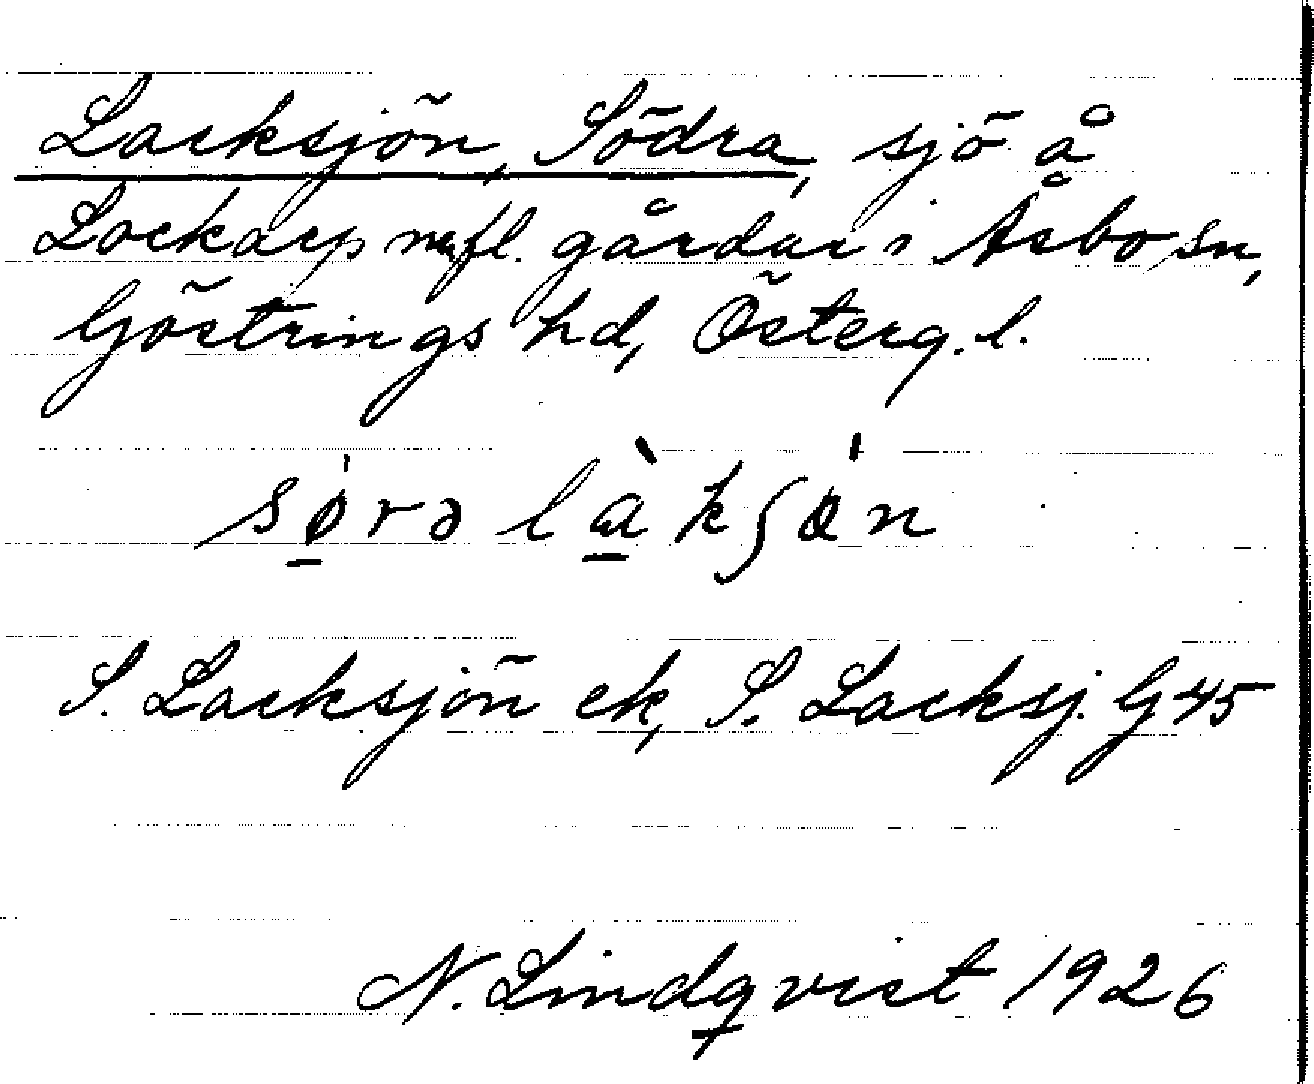 Lacksjön, Södra, sjö å
Lockarp m fl. gårdar i Åsbo sn,
Göstrings hd, Österg. l.
sø̀rə làkʃøn
S. Lacksjön ek, S. Lacksj. G 45
N. Lindqvist 1926